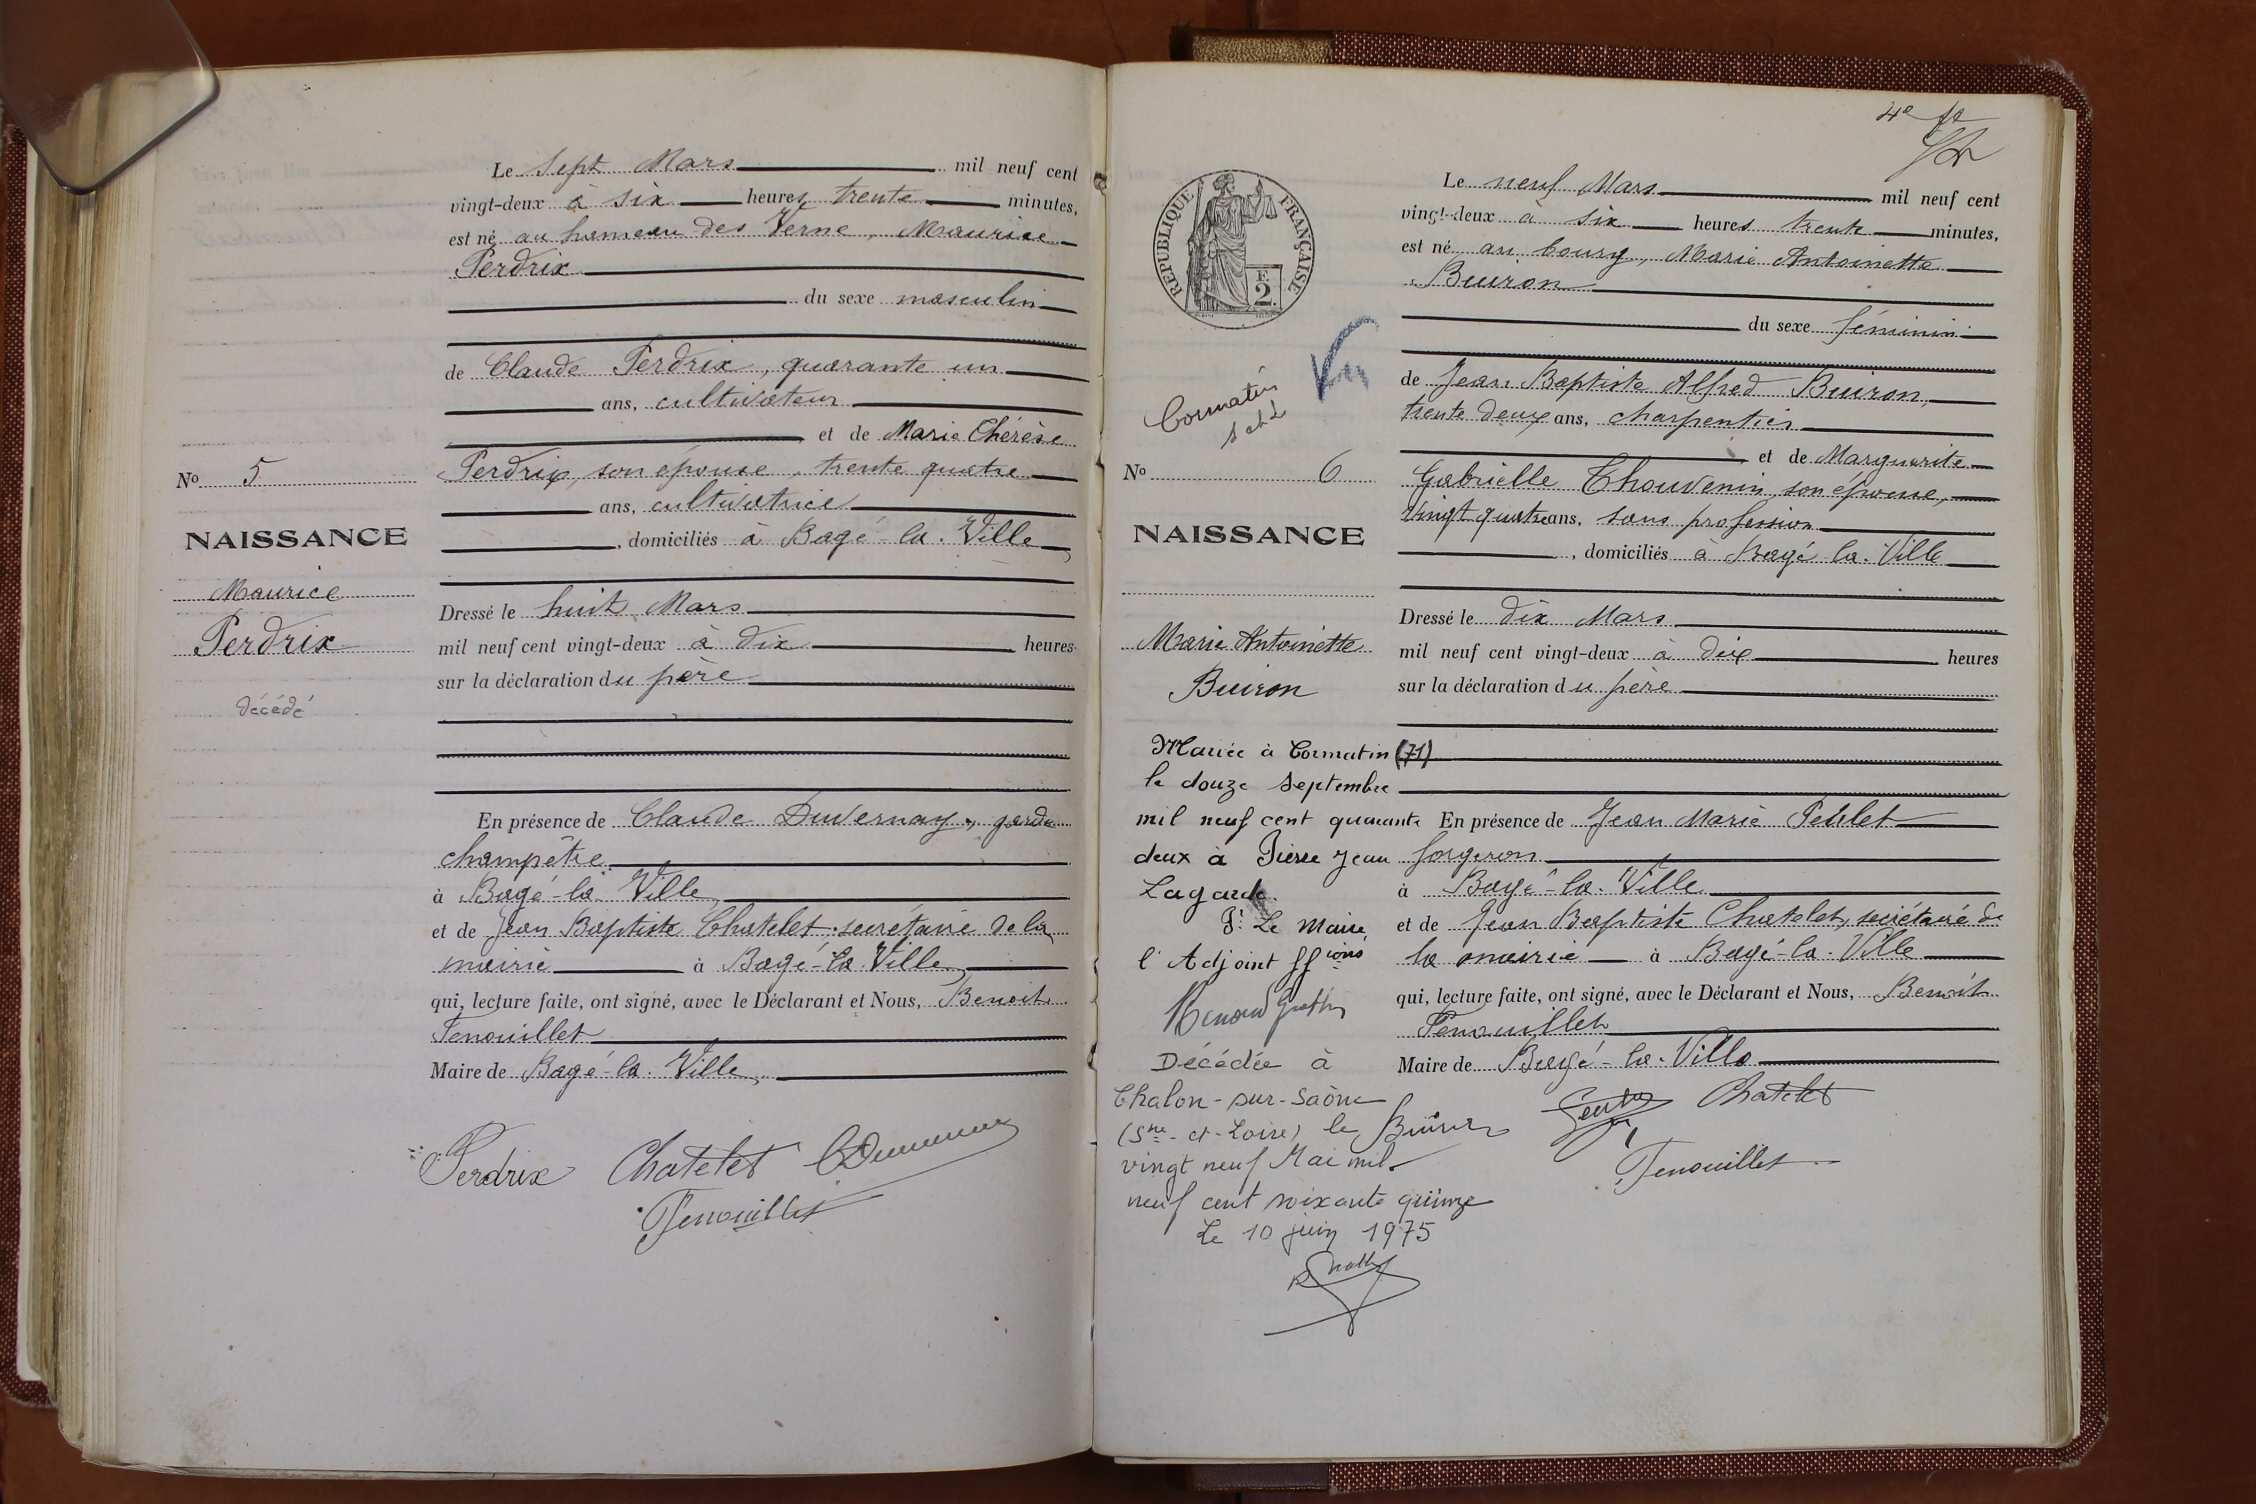 Le sept Mars mil neuf cent
vingt-deux à six heures trente minutes,
est né au hameau des Verne, Maurice
Perdrix
du sexe masculin
de Claude Perdrix, quarante un
ans, cultivateur
et de Marie Thérèse
Perdrix, son épouse, trente quatre
ans, cultivatrice
, domiciliés à Bagé-la-Ville
Dressé le huit Mars
mil neuf cent vingt-deux à dix heures
sur la déclaration du père
En présence de Claude Duvernay, garde
champêtre
à Bagé-la-Ville
et de Jean Baptiste Chatelet secrétaire de la
mairie à Bagé-la-Ville
qui, lecture faite, ont signé, avec le Déclarant et Nous, Benoit
Fenouillet
Maire de Bagé-la-Ville,
Perdrix Chatelet
Fenouillet
No 5
NAISSANCE
Maurice
Perdrix
décédé
4e
RÉPUBLIQUE FRANÇAISE
F.
2
Cormatin
S et L
No 6
NAISSANCE
Marie Antoinette
Buiron
Mariée à Cormatin (71)
le douze Septembre
mil neuf cent quarante
deux à Pierre Jean
Lagarde.
Pr Le Maire
l'Adjoint ffions
Décédée à
Chalon-sur-Saône
(Sne-et-Loire) le
vingt neuf Mai mil
neuf cent soixante quinze
Le 10 juin 1975
Le neuf Mars mil neuf cent
vingt-deux à six heures trente minutes,
est né au bourg, Marie Antoinette
Buiron
du sexe féminin
de Jean Baptiste Alfred Buiron,
trente deux ans, charpentier
et de Marguerite
Gabrielle Thouvenin, son épouse,
vingt quatre ans, sans profession
, domiciliés à Bagé-la-Ville
Dressé le dix Mars
mil neuf cent vingt-deux à dix heures
sur la déclaration du père
En présence de Jean Marie
forgeron
à Bagé-la-Ville
et de Jean Baptiste Chatelet, secrétaire de
la mairie à Bagé-la-Ville
qui, lecture faite, ont signé, avec le Déclarant et Nous, Benoit
Fenouillet
Maire de Bagé-la-Ville
Buiron Chatelet
Fenouillet